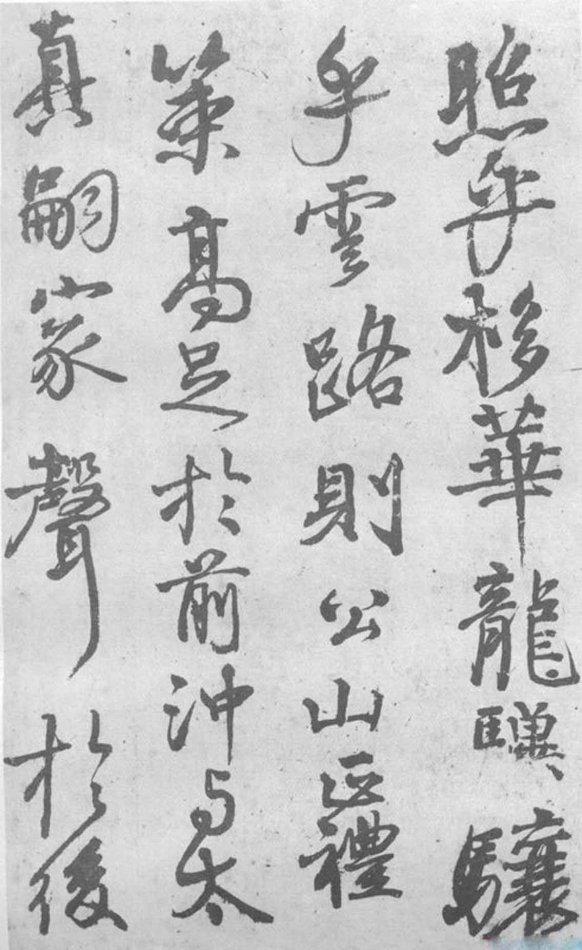 照乎栘華龍驥驤
乎雲路則公山正禮
策高足於前沖与太
真嗣家聲於後